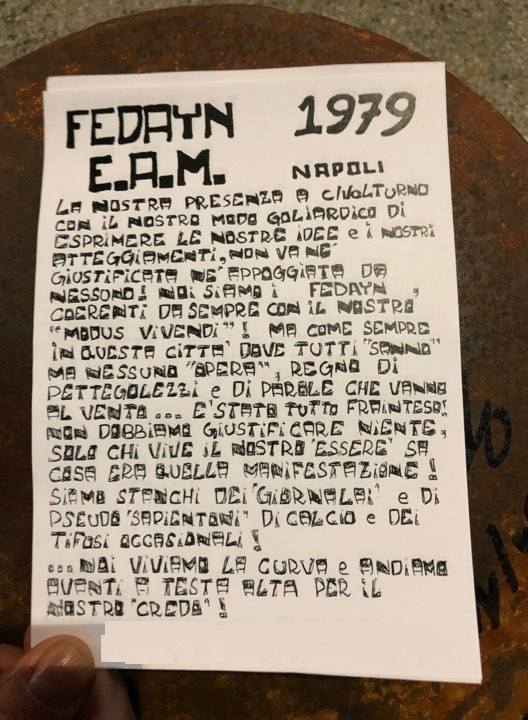 FEDAYN 1979
E.A.M. NAPOLI
LA NOSTRA PRESENZA A C/VOLTURNO
CON IL NOSTRO MODO GOLIARDICO DI
ESPRIMERE LE NOSTRE IDEE e i NOSTRI
ATTEGGIAMENTI, NON VA NE'
GIUSTIFICATA NE' APPOGGIATA DA
NESSUNO! NOI SIAMO i FEDAYN ,
COERENTI DA SEMPRE CON IL NOSTRO
"MODUS VIVENDI"! MA COME SEMPRE
IN QUESTA CITTA' DOVE TUTTI "SANNO"
MA NESSUNO "OPERA", REGNO DI
PETTEGOLEZZI e DI PAROLE CHE VANNO
AL VENTO ... E' STATO TUTTO FRAINTESO!
NON DOBBIAMO GIUSTIFICARE NIENTE,
SOLO CHI VIVE IL NOSTRO "ESSERE" SA
COSA ERA QUELLA MANIFESTAZIONE!
SIAMO STANCHI DEI "GIORNALAI" e DI
PSEUDO "SAPIENTONI" DI CALCIO e DEI
TIFOSI OCCASIONALI!
...NOI VIVIAMO LA CURVA e ANDIAMO
AVANTI A TESTA ALTA PER IL
NOSTRO "CREDO"!